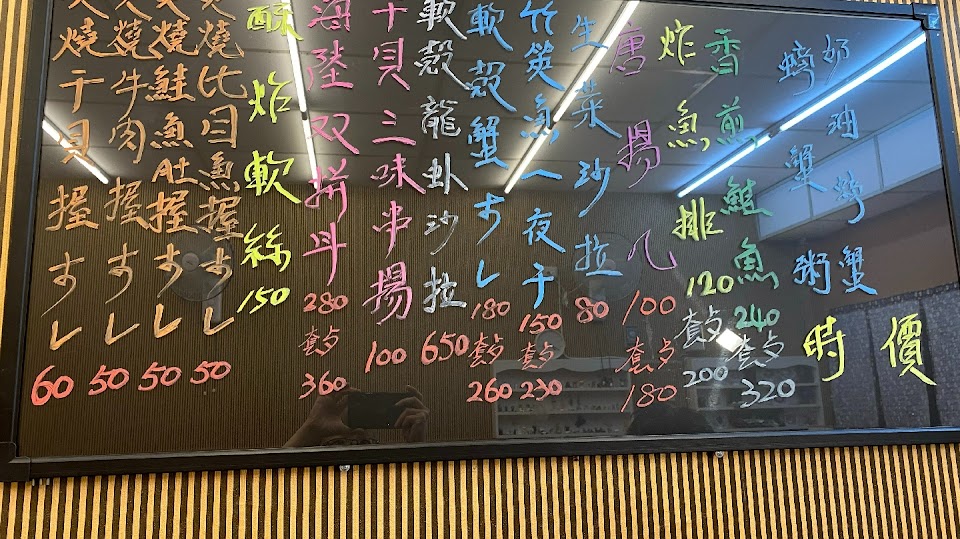 奶油螃蟹
螃蟹粥
時價
香煎鮭魚 240 套点 320
炸魚排 120 套点 200
唐揚 100 套点 180
生菜沙拉 80
竹筴魚一夜干 150 套点 230
軟殼蟹すし 180 套点 260
軟殼龍虾沙拉 650
干貝三味串揚 100
海陸双拼丼 280 套点 360
酥炸軟絲 150
炙燒比目魚握すし 50
炙燒鮭魚肚握すし 50
炙燒牛肉握すし 50
炙燒干貝握すし 60